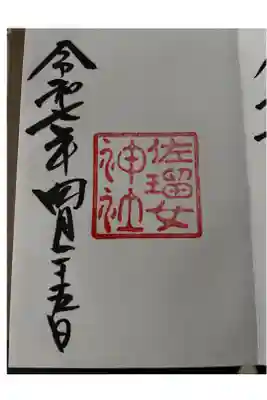 佐瑠女
神社
令和七年四月二十五日